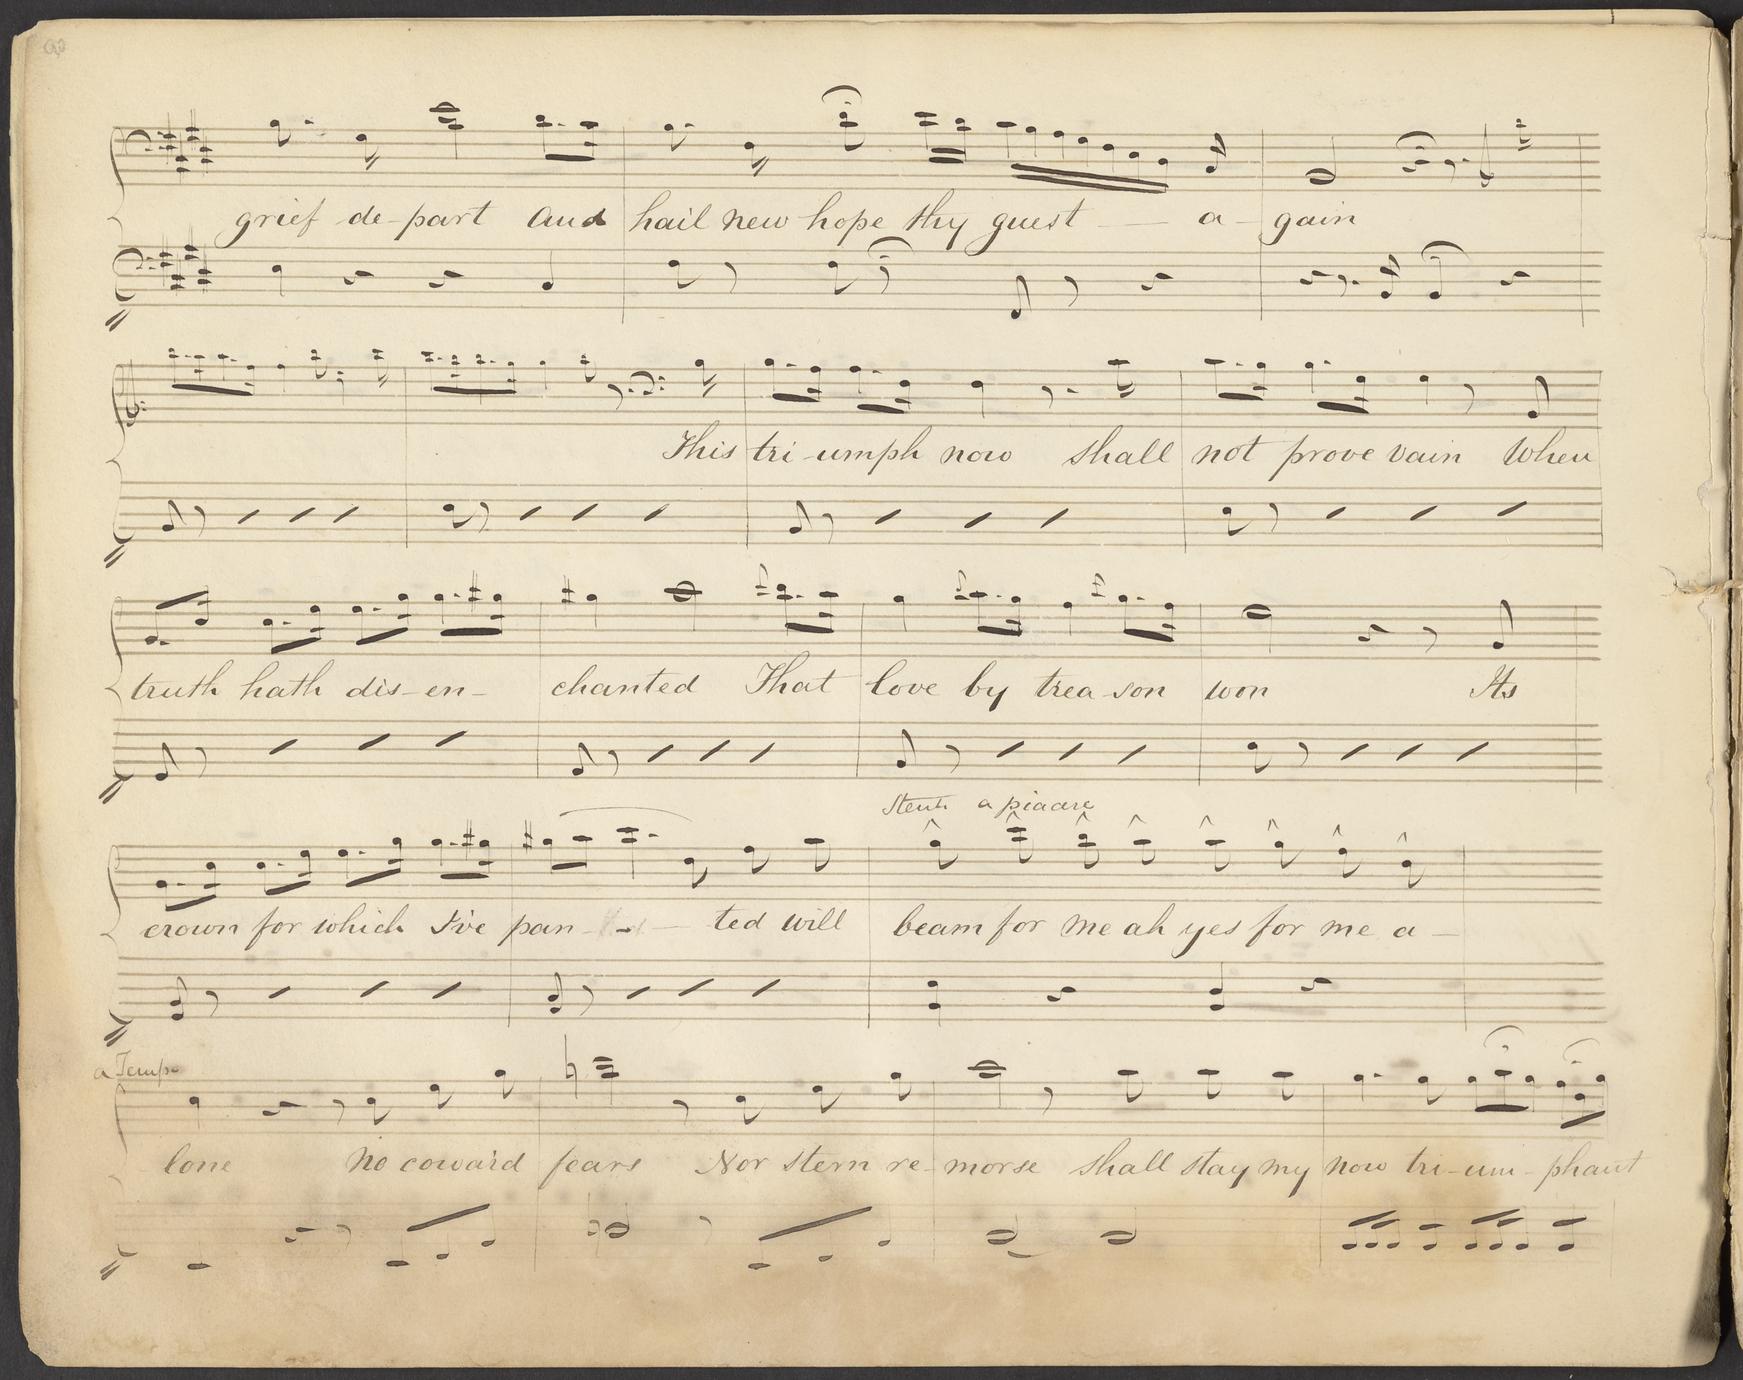 grief de-part and hail new hope thy guest — a-gain
This tri-umph now shall not prove vain When
truth hath dis-en-chanted That love by trea-son won Its
a piacere
crown for which I've pan - - ted will beam for me ah yes for me a-
a Tempo
lone No coward fears Nor stern re-morse shall stay my now tri-um-phant